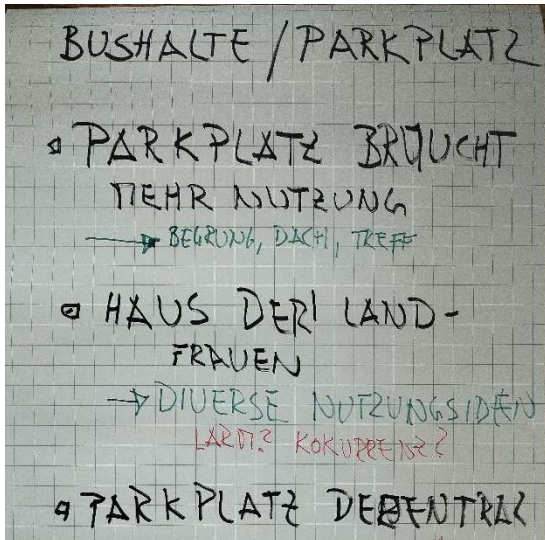 BUSHALTE / PARKPLATZ
PARKPLATZ BRAUCHT
MEHR NUTZUNG
→ BEGRÜNG, DACH, TREFF
HAUS DER LAND-
FRAUEN
→ DIVERSE NUTZUNGSIDEEN
LÄRM? KOKURRENZ?
PARKPLATZ DEZENTRAL